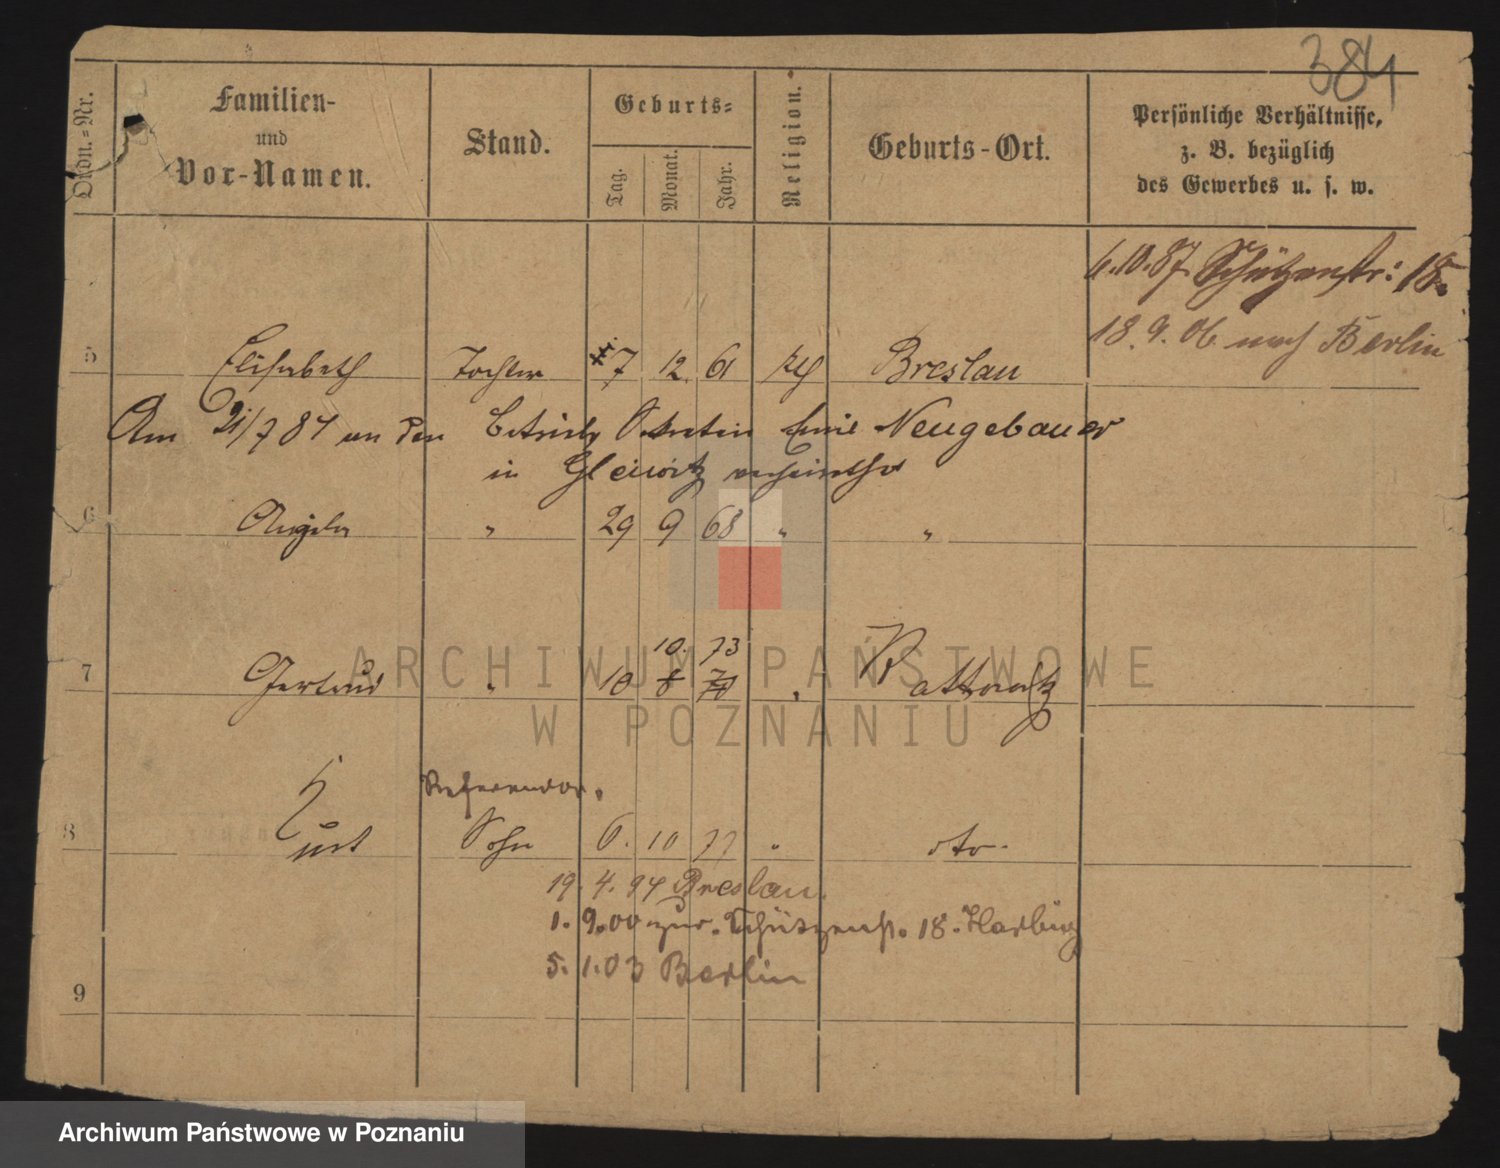 384
Ordn.-Nr.
Familien-
und
Vor-Namen.
Stand.
Geburts-
Tag.
Monat.
Jahr.
Religion.
Geburts-Ort.
Persönliche Verhältnisse,
z. B. bezüglich
des Gewerbes u. s. w.
6.10.87 Schützenstr: 18.
18. 9. 06 nach Berlin
5 Elisabeth Tochter 7 12 61 Breslau
Am 21/7 84 an den Betriebs Emil Neugebauer
in Gleiwitz verheirathet
6 Angela " 29 9 68 " "
10. 73
7 Gertrud " 10 8 70 " Kattowitz
Referendar.
8 Kurt Sohn 6. 10 77 " dto.
19. 4. 94 Breslau.
1. 9. 00 zur. Schützenst. 18. Harburg
5. 1. 03 Berlin
9
ARCHIWUM PAŃSTWOWE
W POZNANIU
Archiwum Państwowe w Poznaniu